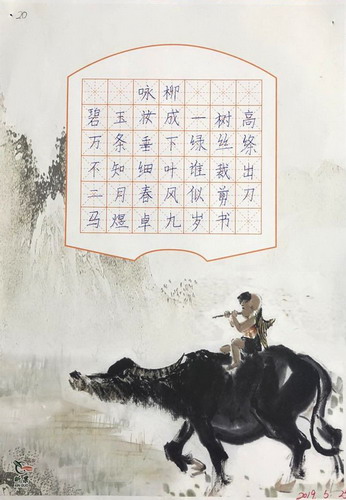 20
咏柳
碧玉妆成一树高
万条垂下绿丝绦
不知细叶谁裁出
二月春风似剪刀
马煜卓九岁书
2019.5.2